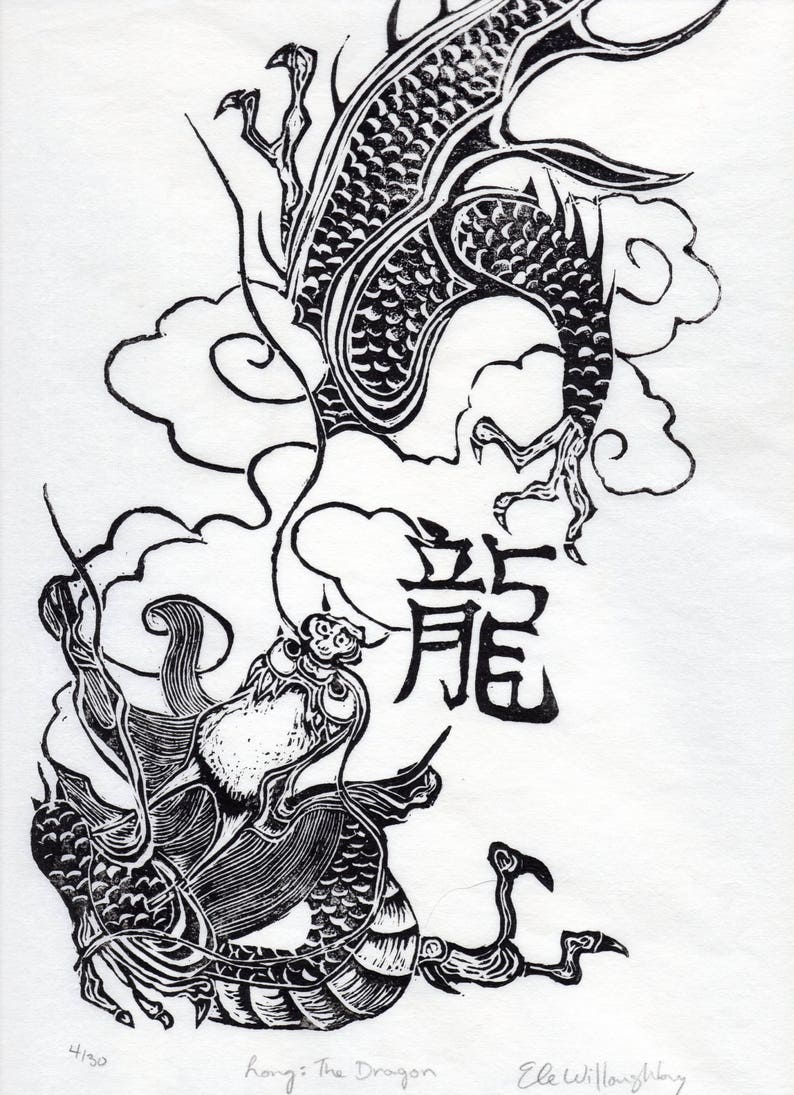 龍
4/30 Long: The Dragon Ele Willoughby